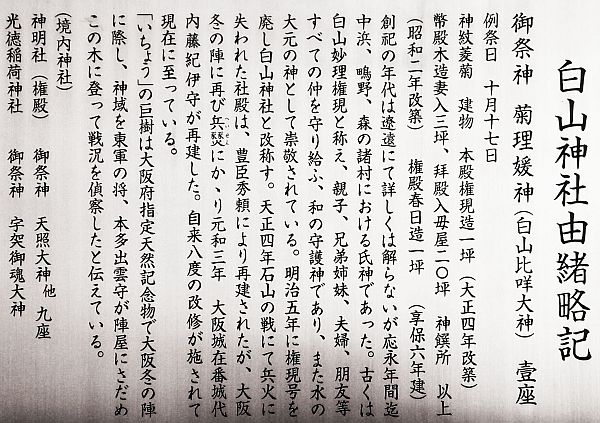 白山神社由緒略記
御祭神　菊理媛神（白山比咩大神）　壹座
例祭日　十月十七日
神紋菱菊　建物　本殿権現造一坪（大正四年改築）
幣殿木造妻入三坪、拝殿入母屋二〇坪　神饌所　以上
（昭和二年改築）　権殿春日造一坪　（享保六年建）
創祀の年代は遼遠にて詳しくは解らないが応永年間迄
中浜、鴫野、森の諸村における氏神であった。古くは
白山妙理権現と称え、親子、兄弟姉妹、夫婦、朋友等
すべての仲を守り給ふ、和の守護神であり、また水の
大元の神として崇敬されている。明治五年に権現号を
廃し白山神社と改称す。天正四年石山の戦にて兵火に
失われた社殿は、豊臣秀頼により再建されたが、大阪
冬の陣に再び兵燹にかゝり元和三年　大阪城在番城代
内藤紀伊守が再建した。自来八度の改修が施されて
現在に至っている。
「いちょう」の巨樹は大阪府指定天然記念物で大阪冬の陣
に際し、神域を東軍の将、本多出雲守が陣屋にさだめ
この木に登って戦況を偵察したと伝えている。
（境内神社）
神明社（権殿）　御祭神　天照大神他　九座
光徳稲荷神社　御祭神　宇迦御魂大神